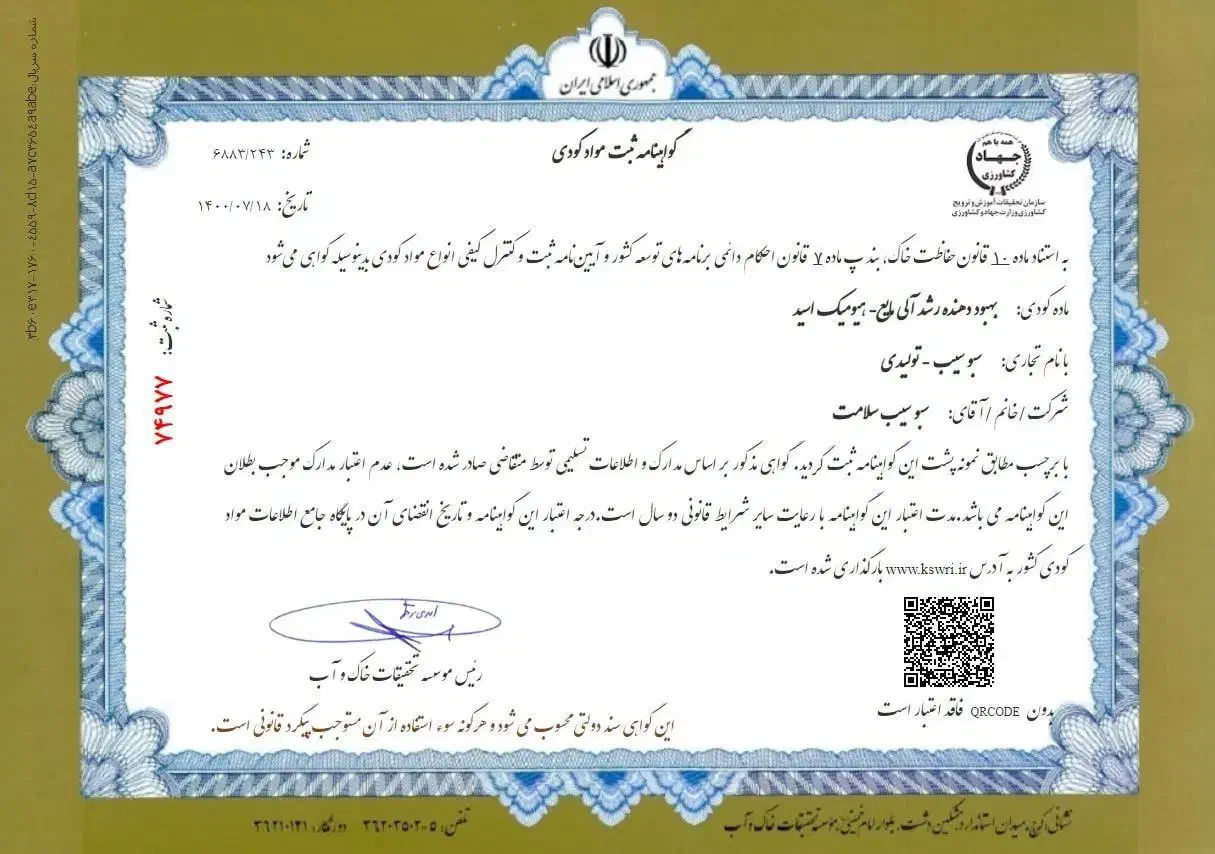 جمهوری اسلامی ایران
همه با هم
جهاد
کشاورزی
سازمان تحقیقات آموزش و ترویج
کشاورزی وزارت جهاد کشاورزی
گواهینامه ثبت مواد کودی
شماره: ۶۸۸۳/۲۴۳
تاریخ: ۱۴۰۰/۰۷/۱۸
به استناد ماده ۱۰ قانون حفاظت خاک، بند پ ماده ۷ قانون احکام دائمی برنامه های توسعه کشور و آیین‌نامه ثبت و کنترل کیفی انواع مواد کودی بدینوسیله گواهی می‌شود
ماده کودی: بهبود دهنده رشد آلی مایع- هیومیک اسید
با نام تجاری: سبو سیب - تولیدی
شرکت /خانم /آقای: سبو سیب سلامت
با برچسب مطابق نمونه پشت این گواهینامه ثبت گردید. گواهی مذکور بر اساس مدارک و اطلاعات تسلیمی توسط متقاضی صادر شده است، عدم اعتبار مدارک موجب بطلان
این گواهینامه می باشد.مدت اعتبار این گواهینامه با رعایت سایر شرایط قانونی دو سال است.درجه اعتبار این گواهینامه و تاریخ انقضای آن در پایگاه جامع اطلاعات مواد
کودی کشور به آدرس www.kswri.ir بارگذاری شده است.
شماره ثبت:
۷۴۹۷۷
رئیس موسسه تحقیقات خاک و آب
بدون QRCODE فاقد اعتبار است
این گواهی سند دولتی محسوب می شود و هرگونه سوء استفاده از آن مستوجب پیگرد قانونی است.
نشانی: کرج، میدان استاندارد، مشکین دشت، بلوار امام خمینی، مؤسسه تحقیقات خاک و آب
تلفن: ۵-۳۶۲۰۳۵۰۲ دورنگار: ۳۶۲۱۰۱۲۱
شماره سریال: